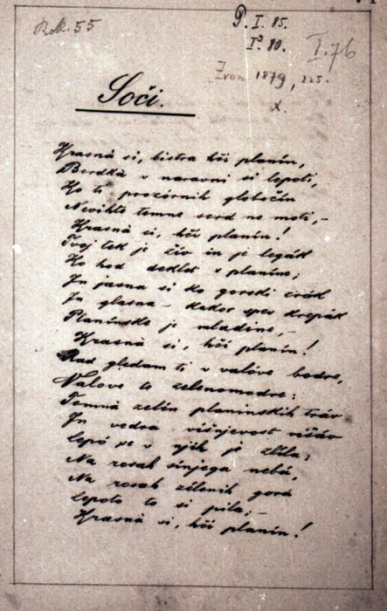 Rok. 55
P. I. 85.
I² 80.
I. 76
Zvon 1879, 225.
x.
Soči.
Krasnà si, bistra hči planin,
Brdkà v naravni si lepoti,
Ko ti prozornih globočin
Nevihte temne serd ne moti, –
Krasnà si, hči planin!
Tvoj tek je živ in je legàk
Ko hod deklet s planine;
In jasna si ko gorski zràk
In glasna – kakor spev krepàk
Planinske je mladine, –
Krasnà si, hči planin!
Rad gledam ti v valove bodre,
Valove te zelenomodre:
Temnà zelén planinskih tràv
In vedra višnjevost višàv
Lepó se v njih je zlila;
Na rosah sinjega nebá,
Na rosah zélenih gorá
Lepoto to si pila; –
Krasnà si, hči planin!